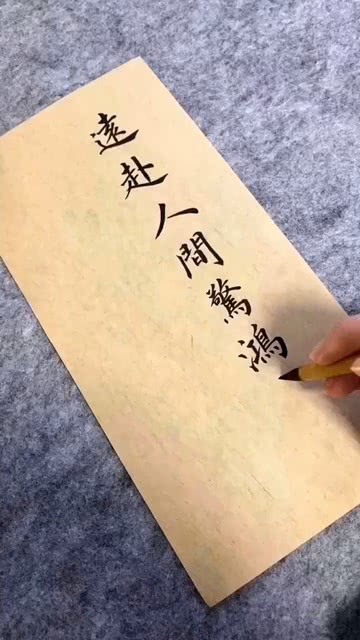 遠赴人間驚鴻